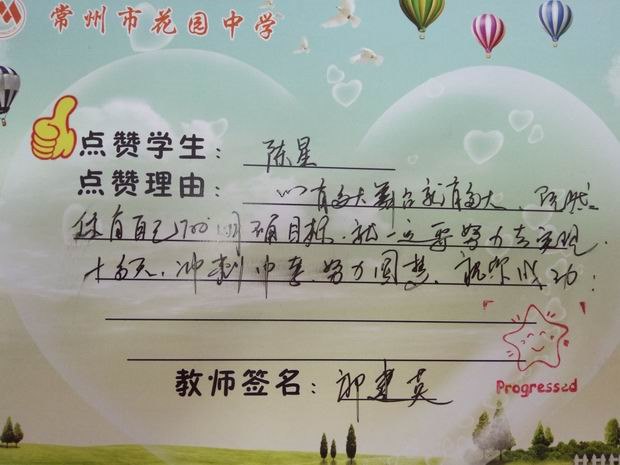 常州市花园中学
点赞学生：陈星
点赞理由：心有多大舞台就有多大 既然
你有自己的明确目标，就一定要努力去实现．
冲刺中考，努力圆梦，祝你成功！
教师签名：建英
Progressed